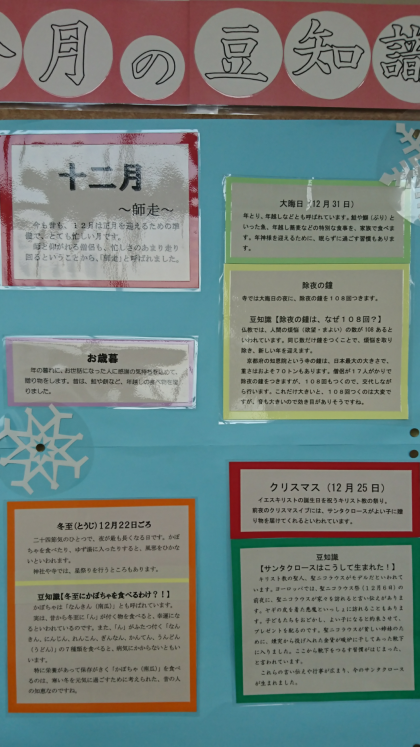 今月の豆知識
十二月
～師走～
今も昔も、12月は正月を迎えるための準
備で、とても忙しい月です。
師と仰がれる僧侶も、忙しさのあまり走り
回るということから、「師走」と呼ばれました。
お歳暮
年の暮れに、お世話になった人に感謝の気持ちを込めて、
贈り物をします。昔は、鮭や餅など、年越しの食べ物を贈
りました。
冬至(とうじ)12月22日ごろ
二十四節気のひとつで、夜が最も長くなる日です。かぼ
ちゃを食べたり、ゆず湯に入ったりすると、風邪をひかな
いといわれます。
神社や寺では、星祭りを行うところもあります。
豆知識【冬至にかぼちゃを食べるわけ?!】
かぼちゃは「なんきん(南瓜)」とも呼ばれています。
実は、昔から冬至に「ん」が付く物を食べると、幸運にな
るといわれているのです。また、「ん」がふたつ付く「なん
きん、にんじん、れんこん、ぎんなん、かんてん、うんどん
(うどん)」の7種類を食べると、病気にかからないともい
います。
特に栄養があって保存がきく「かぼちゃ(南瓜)」を食べ
るのは、寒い冬を元気に過ごすために考えられた、昔の人
の知恵なのですね。
大晦日(12月31日)
年とり、年越しなどとも呼ばれています。鮭や鰤(ぶり)と
いった魚、年越し蕎麦などの特別な食事を、家族で食べま
す。年神様を迎えるために、眠らずに過ごす習慣もありま
す。
除夜の鐘
寺では大晦日の夜に、除夜の鐘を108回つきます。
豆知識【除夜の鐘は、なぜ108回?】
仏教では、人間の煩悩(欲望・まよい)の数が108あると
いわれています。同じ数だけ鐘をつくことで、煩悩を取り
除き、新しい年を迎えます。
京都府の知恩院という寺の鐘は、日本最大の大きさで、
重さはおよそ70トンもあります。僧侶が17人がかりで
除夜の鐘をつきますが、108回もつくので、交代しなが
ら行います。これだけ大きいと、108回つくのは大変で
すが、音も大きいので効き目がありそうですね。
クリスマス(12月25日)
イエスキリストの誕生日を祝うキリスト教の祭り。
前夜のクリスマスイブには、サンタクロースがよい子に贈
り物を届けてくれるといわれています。
豆知識
【サンタクロースはこうして生まれた!】
キリスト教の聖人、聖ニコラウスがモデルだといわれて
います。ヨーロッパでは、聖ニコラウス祭(12月6日)の
前夜に、聖ニコラウスが家々を訪れると言い伝えがありま
す。